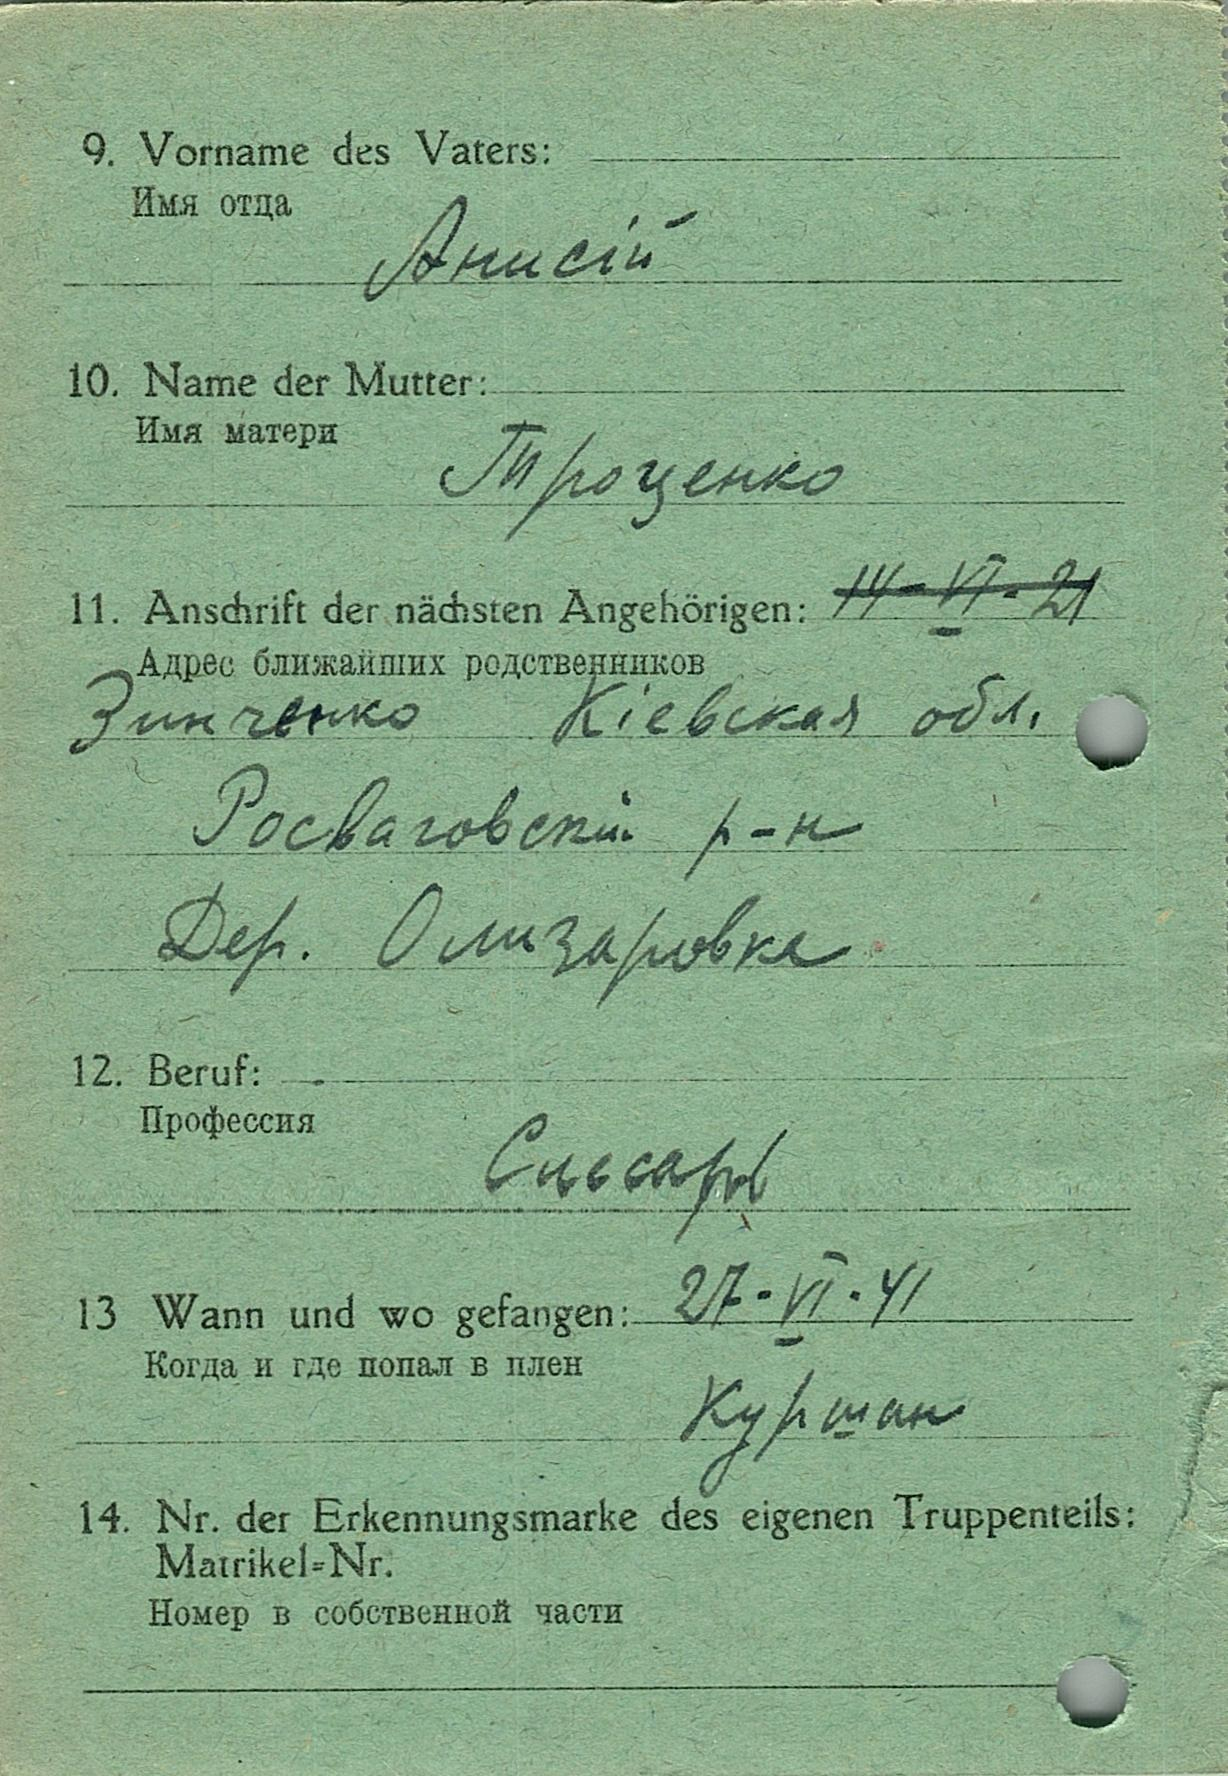 9. Vorname des Vaters:
Имя отца
Анисій
10. Name der Mutter:
Имя матери
Троценко
11. Anschrift der nächsten Angehörigen: 14-VI-21
Адрес ближайших родственников
Зинченко Кіевская обл.
Росваговскій р-н
Дер. Олизаровка
12. Beruf:
Профессия
Слесарь
13 Wann und wo gefangen: 27-VI-41
Когда и где попал в плен
Куршан
14. Nr. der Erkennungsmarke des eigenen Truppenteils:
Matrikel=Nr.
Номер в собственной части